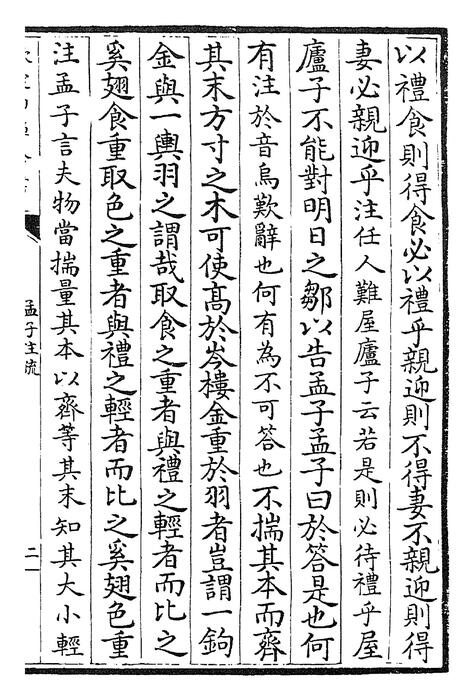 以禮食則得食必以禮乎親迎則不得妻不親迎則得
妻必親迎乎注任人難屋廬子云若是則必待禮乎屋
廬子不能對明日之鄒以告孟子孟子曰於答是也何
有注於音烏歎辭也何有為不可答也不揣其本而齊
其末方寸之木可使髙於岑樓金重於羽者豈謂一鉤
金與一輿羽之謂哉取食之重者與禮之輕者而比之
奚翅食重取色之重者與禮之輕者而比之奚翅色重
注孟子言夫物當揣量其本以齊等其末知其大小輕
孟子注疏